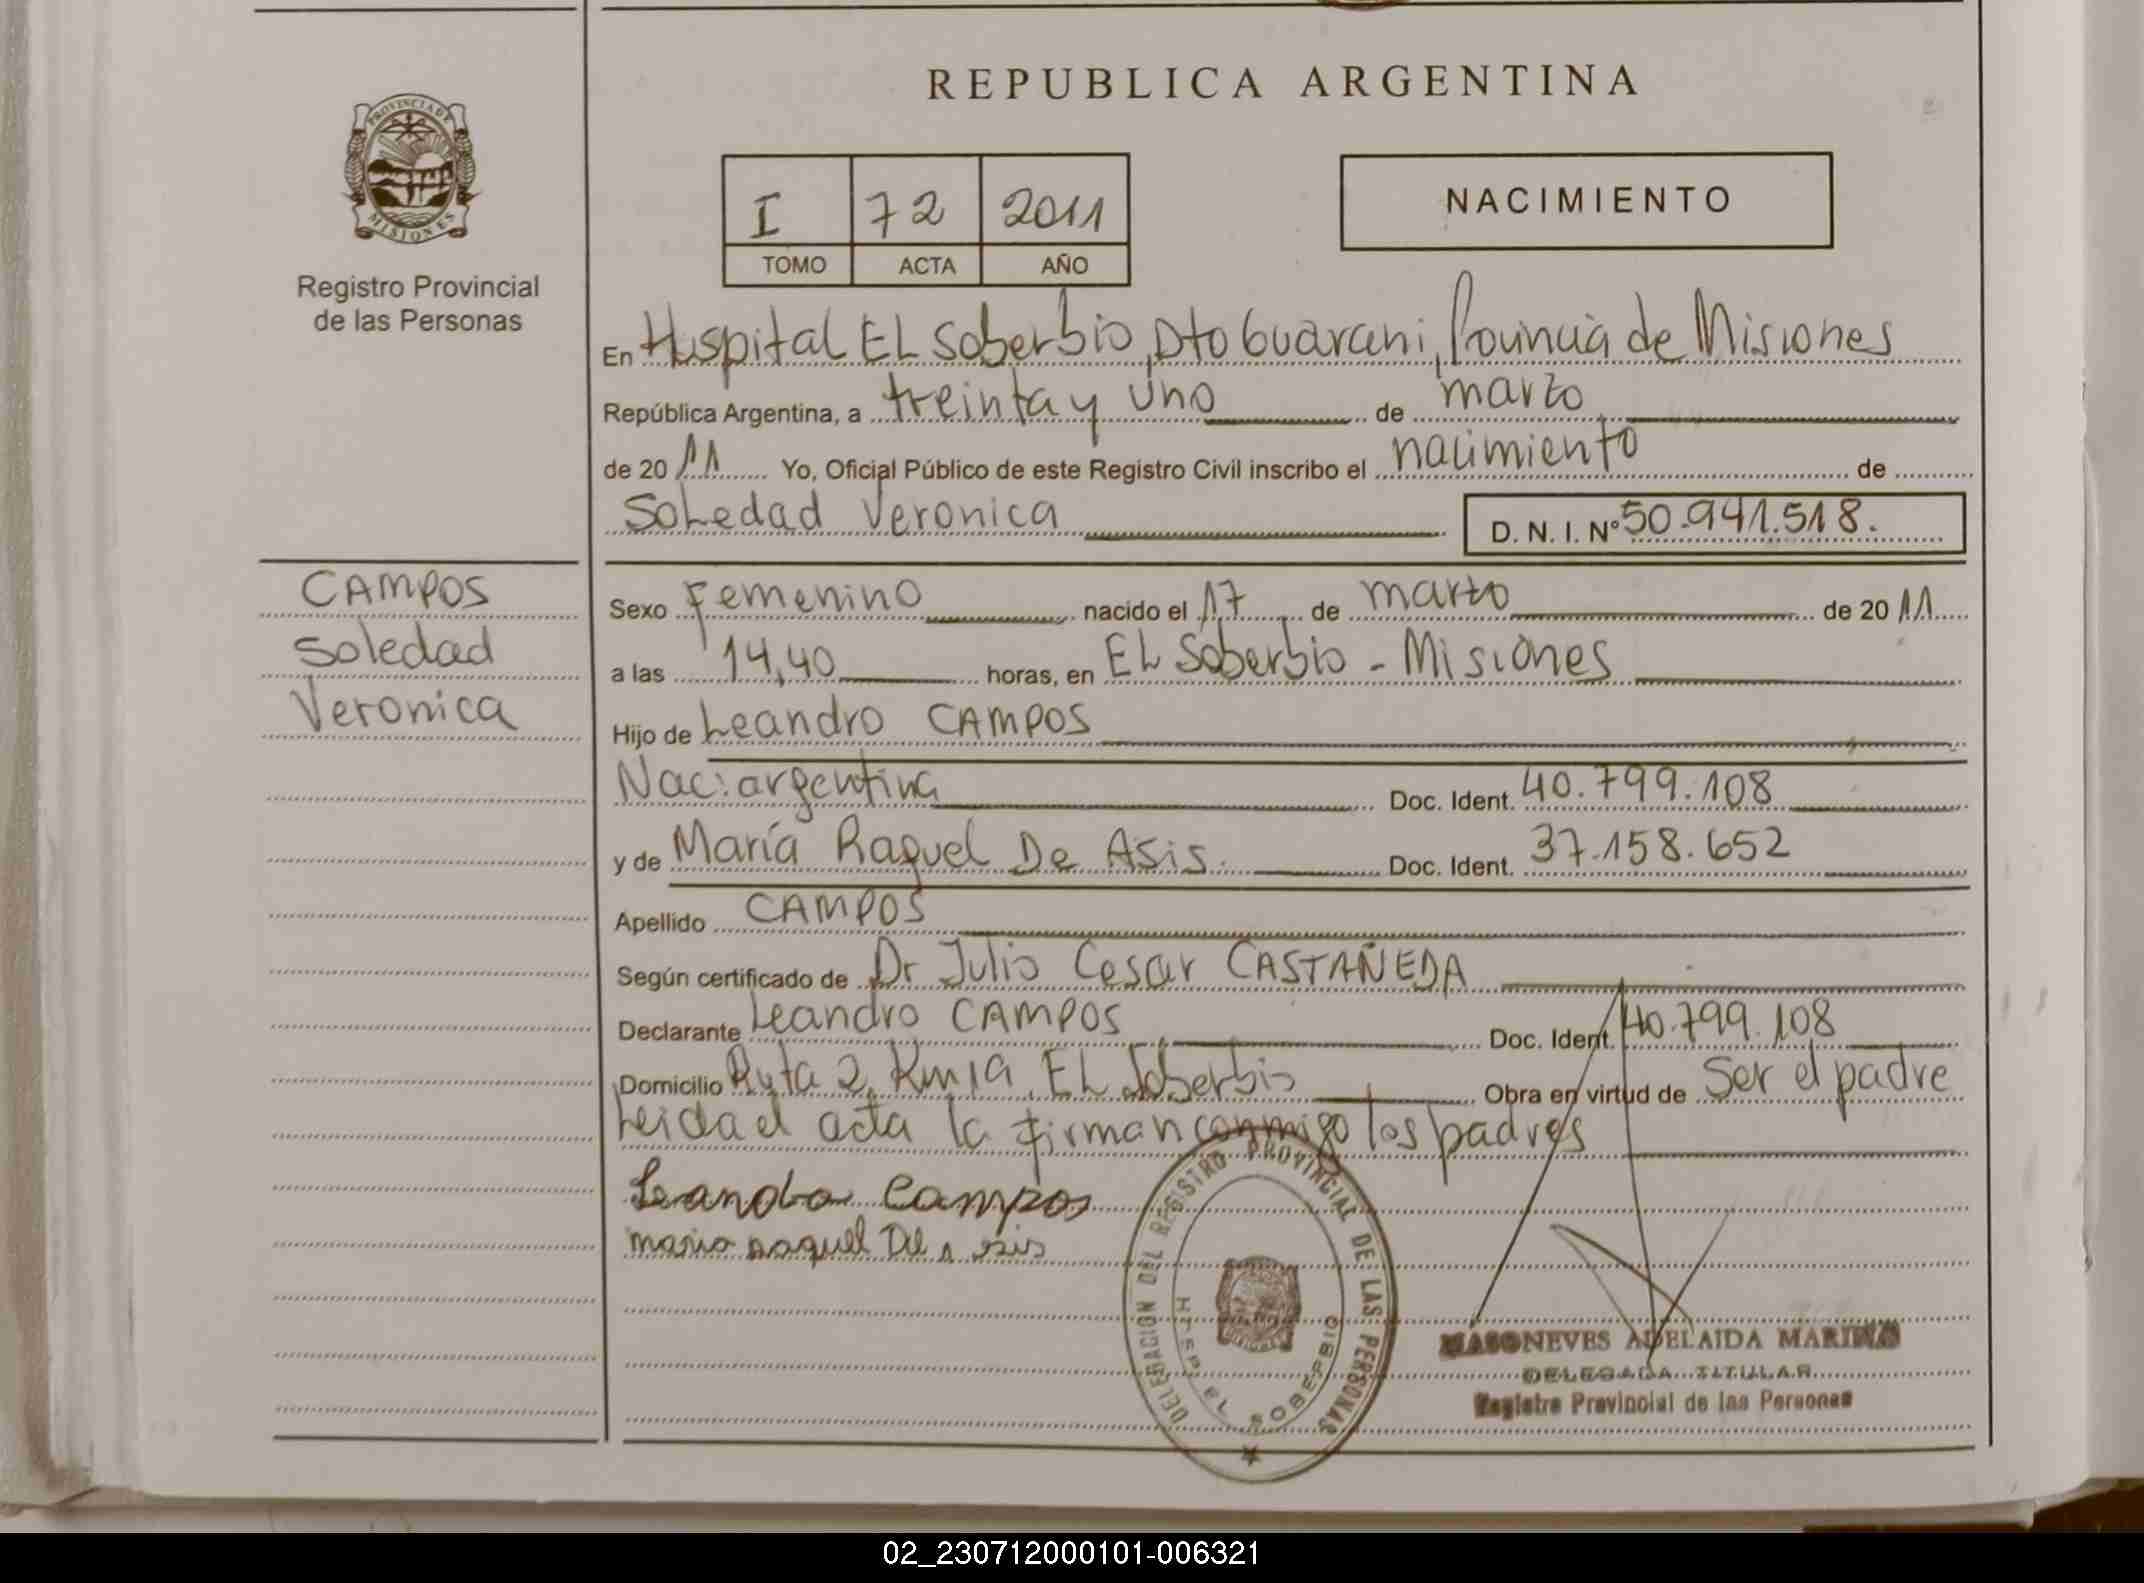 REPUBLICA ARGENTINA
PROVINCIA DE
MISIONES
Registro Provincial
de las Personas
I 72 2011
TOMO ACTA AÑO
NACIMIENTO
En Hospital EL Soberbio, Dto Guarani, Provincia de Misiones
República Argentina, a treinta y uno de marzo
de 20 11 Yo, Oficial Público de este Registro Civil inscribo el nacimiento de
Soledad Veronica D. N. I. Nº 50.941.518.
CAMPOS
Soledad
Veronica
Sexo Femenino nacido el 17 de marzo de 20 11
a las 14,40 horas, en EL Soberbio - Misiones
Hijo de Leandro CAMPOS
Nac: argentina Doc. Ident. 40.799.108
y de María Raquel De Asis. Doc. Ident. 37.158.652
Apellido CAMPOS
Según certificado de Dr Julio Cesar CASTAÑEDA
Declarante Leandro CAMPOS Doc. Ident. 40.799.108
Domicilio Ruta 2, Km 19, EL Soberbio Obra en virtud de Ser el padre
Leida el acta la firman conmigo los padres
Leandro Campos
maria raquel De Asis
DELEGACION DEL REGISTRO PROVINCIAL DE LAS PERSONAS
SOBERBIO
NEVES ADELAIDA
DELEGADA TITULAR
Registro Provincial de las Personas
02_230712000101-006321